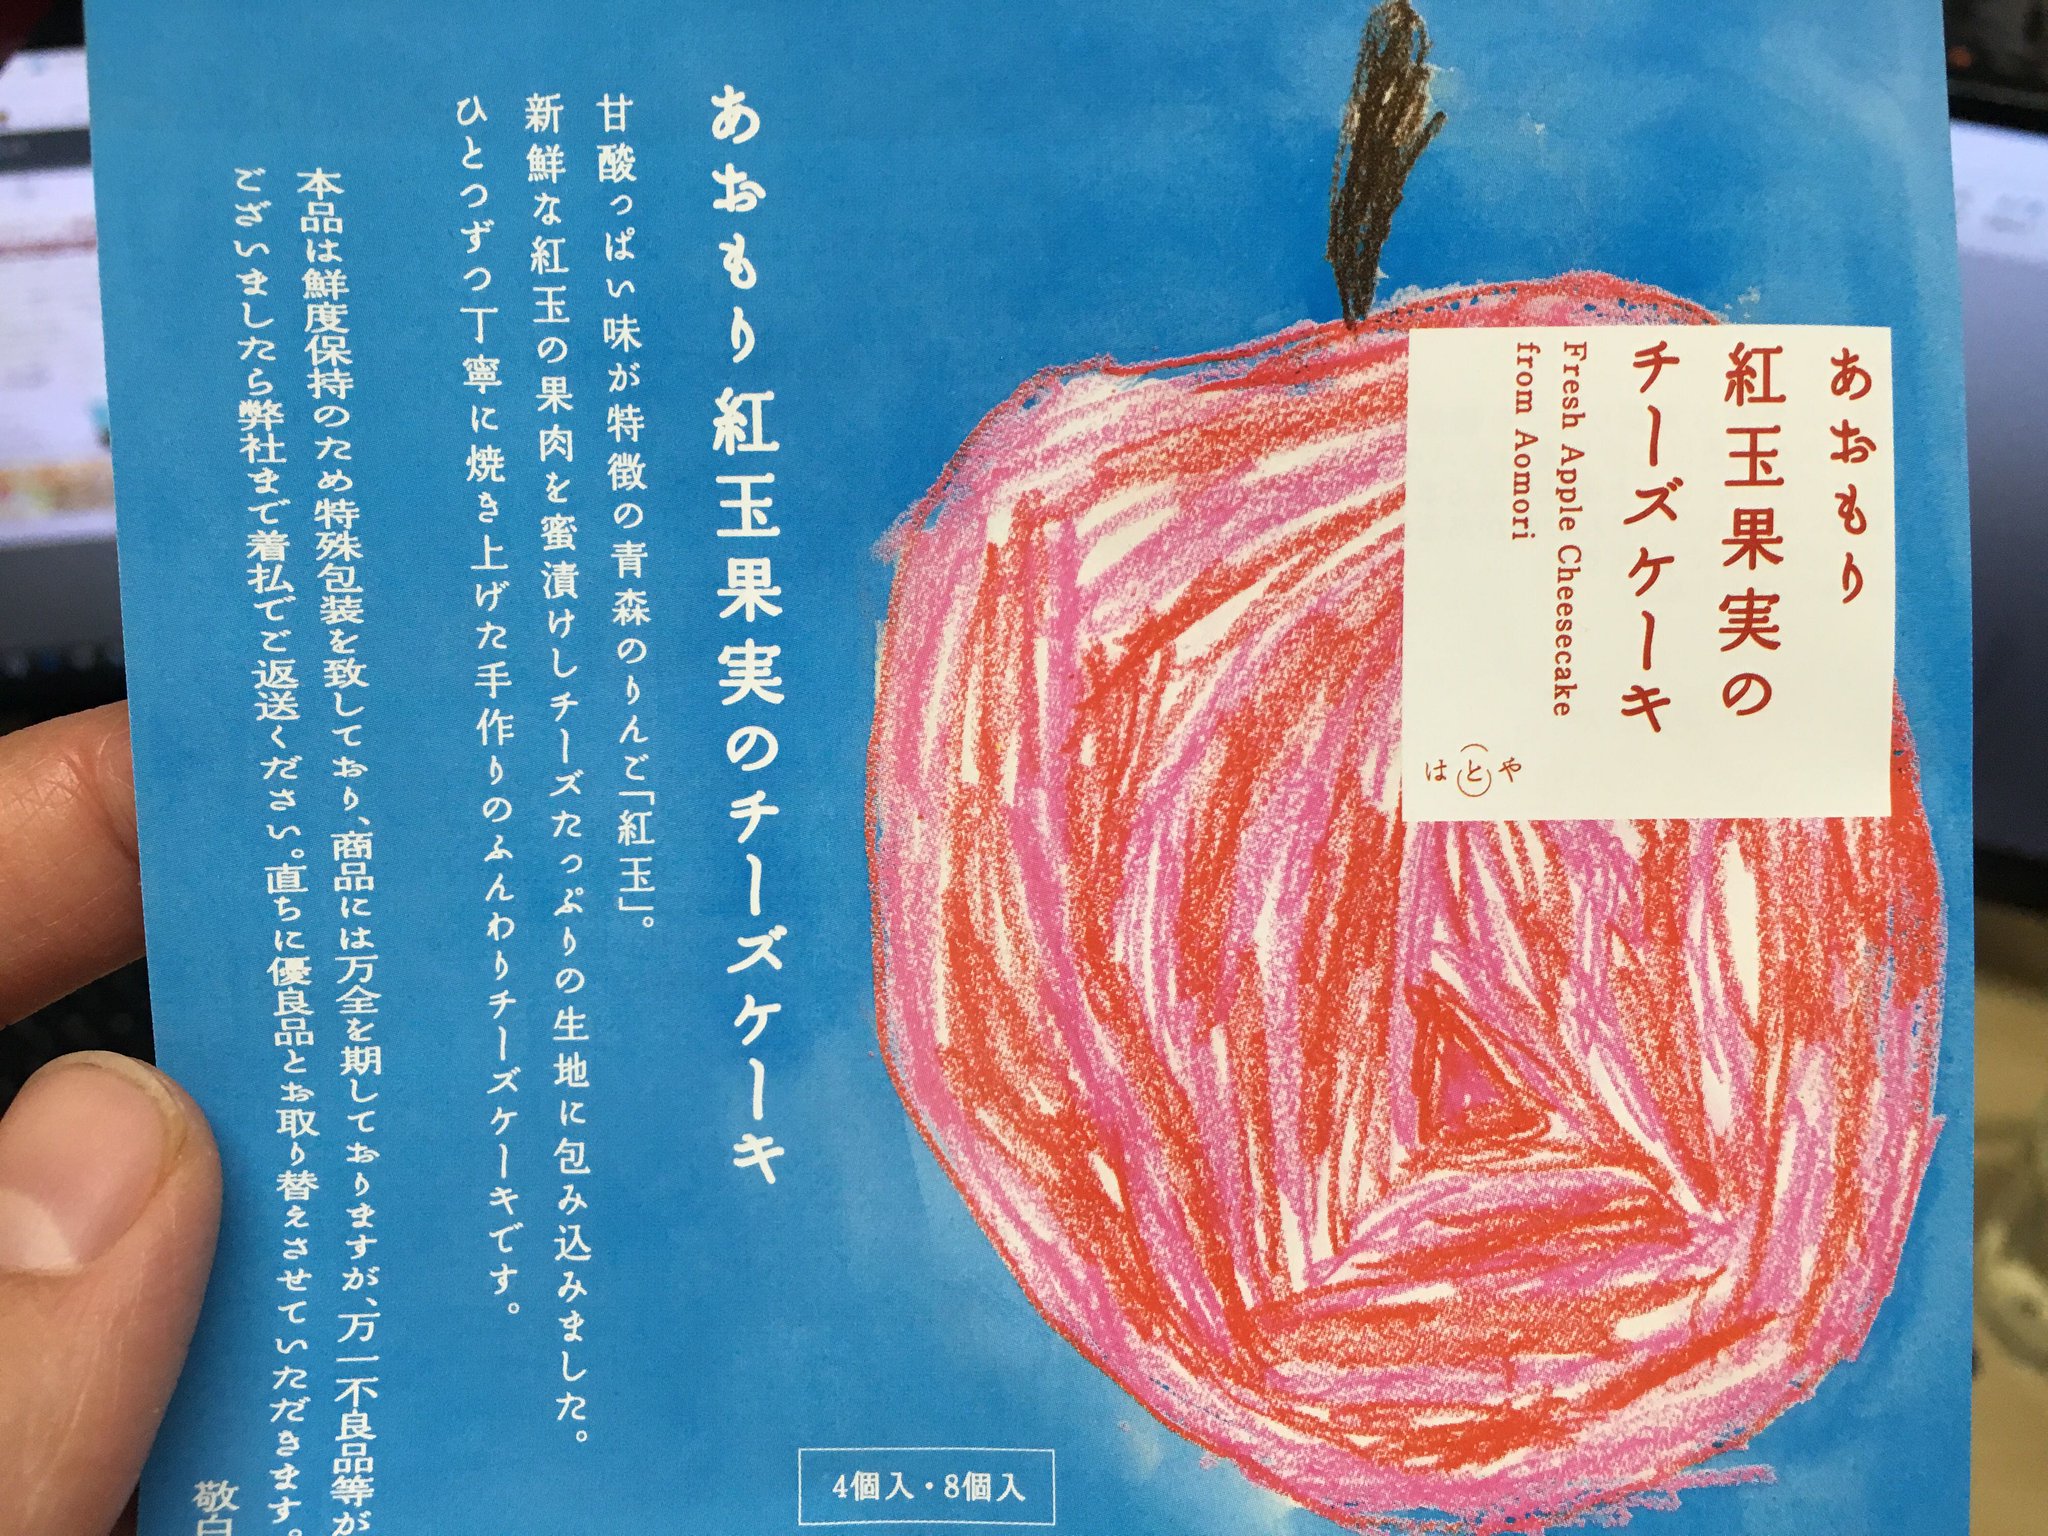 あおもり
紅玉果実の
チーズケーキ
Fresh Apple Cheesecake
from Aomori
はとや
あおもり紅玉果実のチーズケーキ
甘酸っぱい味が特徴の青森のりんご「紅玉」。
新鮮な紅玉の果肉を蜜漬けしチーズたっぷりの生地に包み込みました。
ひとつずつ丁寧に焼き上げた手作りのふんわりチーズケーキです。
本品は鮮度保持のため特殊包装を致しており、商品には万全を期しておりますが、万一不良品等が
ございましたら弊社まで着払でご返送ください。直ちに優良品とお取り替えさせていただきます。
敬白
4個入・8個入